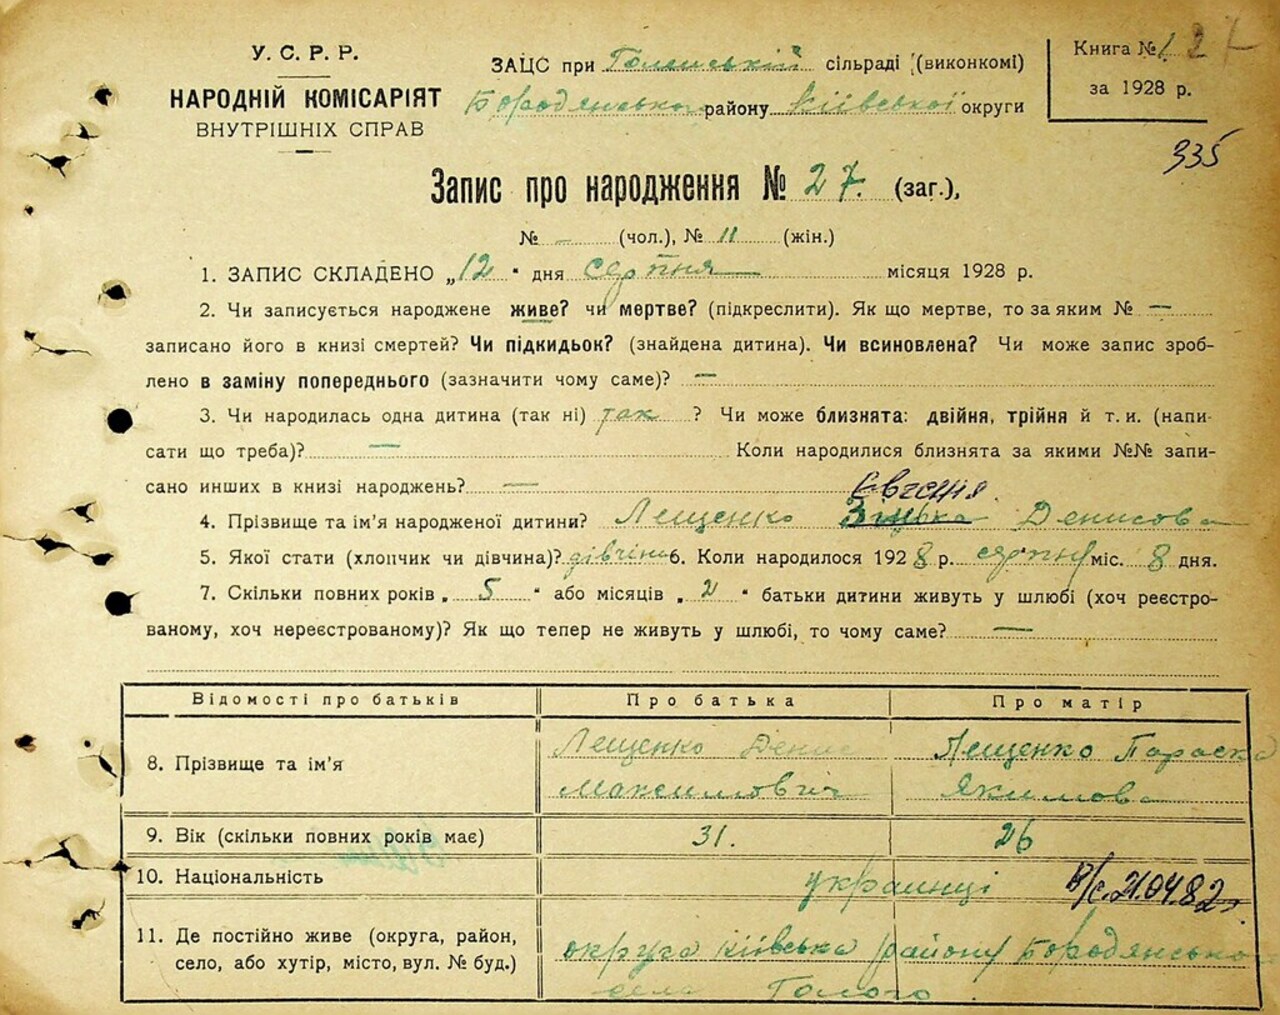 У. С. Р. Р.
НАРОДНІЙ КОМІСАРІЯТ
ВНУТРІШНІХ СПРАВ
ЗАЦС при Голенській сільраді (виконкомі)
Бородянського району Київської округи
Книга № 1 27
за 1928 р.
935
Запис про народження № 27. (заг.),
№ — (чол.), № 11 (жін.)
1. ЗАПИС СКЛАДЕНО „12" дня серпня місяця 1928 р.
2. Чи записується народжене живе? чи мертве? (підкреслити). Як що мертве, то за яким № —
записано його в книзі смертей? Чи підкидьок? (знайдена дитина). Чи всиновлена? Чи може запис зроб-
лено в заміну попереднього (зазначити чому саме)? —
3. Чи народилась одна дитина (так ні) так ? Чи може близнята: двійня, трійня й т. и. (напи-
сати що треба)? — Коли народилися близнята за якими №№ запи-
сано инших в книзі народжень? —
Євгенія.
4. Прізвище та ім'я народженої дитини? Лещенко Денисова
5. Якої стати (хлопчик чи дівчина)? дівчина 6. Коли народилося 1928 р. серпня міс. 8 дня.
7. Скільки повних років „ 5 " або місяців „ 2 " батьки дитини живуть у шлюбі (хоч реєстро-
ваному, хоч нереєстрованому)? Як що тепер не живуть у шлюбі, то чому саме? —
Відомості про батьків Про батька Про матір
8. Прізвище та ім'я
Лещенко Денис
Максимович
Лещенко Параска
Якимова
9. Вік (скільки повних років має) 31. 26
10. Національність украинці в/с. 21.04.82г.
11. Де постійно живе (округа, район,
село, або хутір, місто, вул. № буд.)
округа Київська району Бородянсько
села